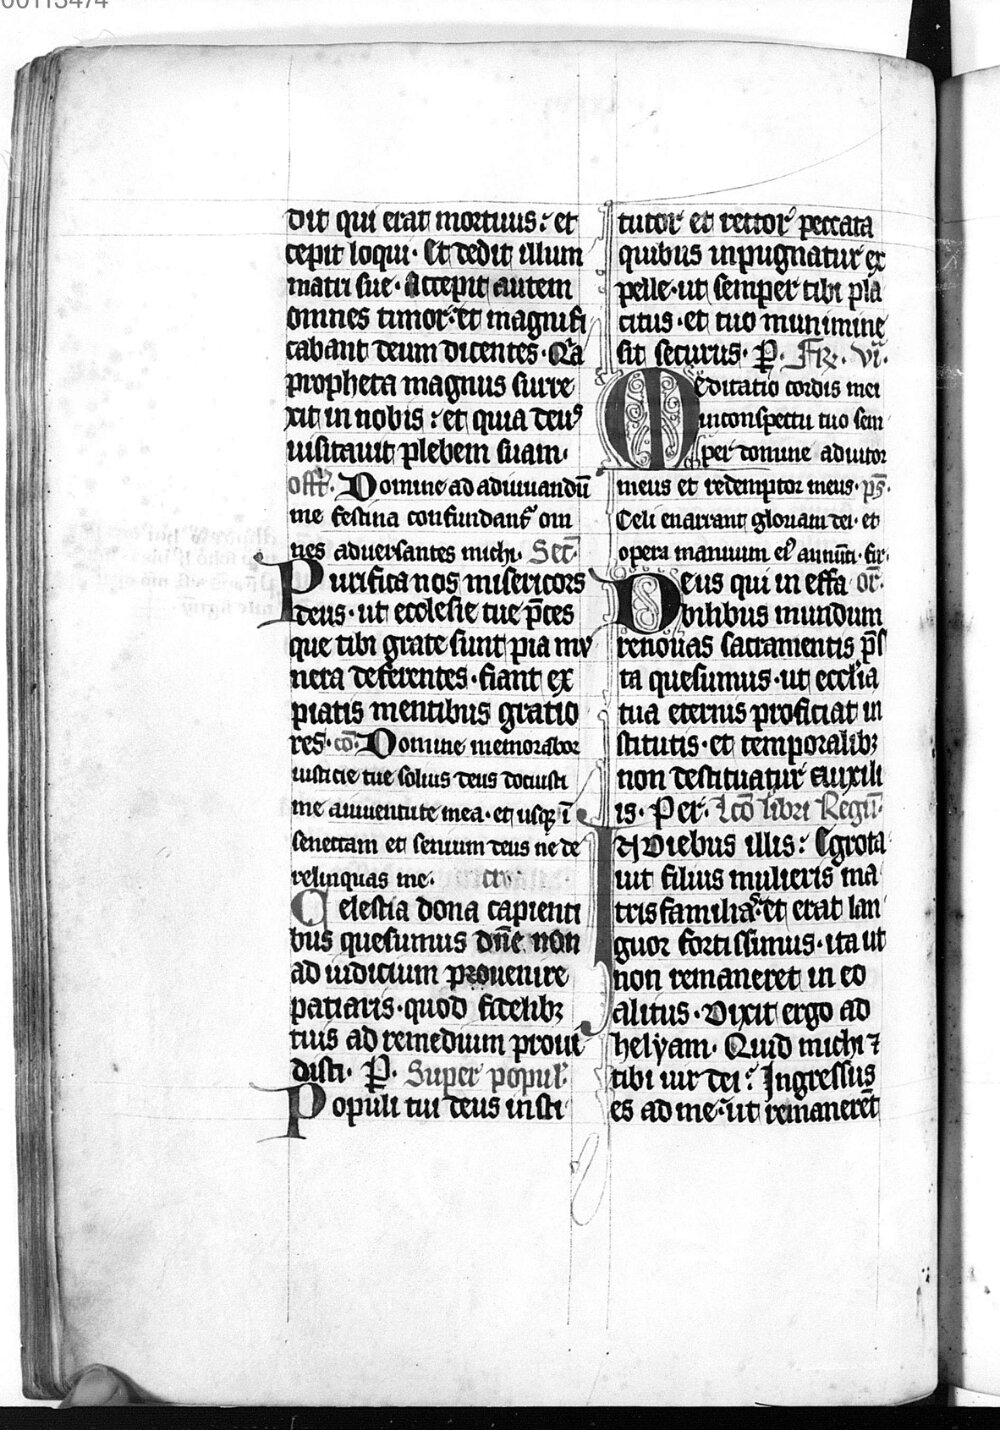 00113474
dit qui erat mortuus: et
cepit loqui. Et dedit illum
matri sue. Accepit autem
omnes timor: et magnifi
cabant deum dicentes. Qr̄a
propheta magnus surre
xit in nobis: et quia deus
uisitauit plebem suam.
offr̄. Domine ad adiuuandū
me festina confundant᷑ om
nes aduersantes michi. Sec̄
Purifica nos misericors
deus. ut ecclesie tue p̄ces
que tibi grate sunt pia mu
nera deferentes. fiant ex
piatis mentibus gratio
res. cō. Domine memorabor
iusticie tue solius deus docuisti
me a iuuentute mea. et usqꝫ ī
senectam et senium deus ne de
relinquas me.
Celestia dona capienti
bus quesumus dn̄e non
ad iudicium prouenire
patiaris. quod fidelibꝫ
tuis ad remedium proui
disti. P̄. Super popul̄.
Populi tui deus insti
tutor et rector peccata
quibus inpugnatur ex
pelle. ut semper tibi pla
citus. et tuo munimine
sit securus. P̄. Fr̄. vī.
Meditatio cordis mei
in conspectu tuo sem
per domine adiutor
meus et redemptor meus. ps̄.
Celi enarrant gloriam dei. et
opera manuum eꝰ annūti. fir.
Deus qui in effa or̄.
bilibus mundum
renouas sacramentis p̄s
ta quesumus. ut ecclīa
tua eternis proficiat in
stitutis. et temporalibꝫ
non destituatur auxili
is. Per. Lcō libri Regū.
In diebus illis: Egrota
uit filius mulieris ma
trisfamilias. et erat lan
guor fortissimus. ita ut
non remaneret in eo
alitus. Dixit ergo ad
helyam. Quid michi ⁊
tibi uir dei? Ingressus
es ad me. ut remanerēt